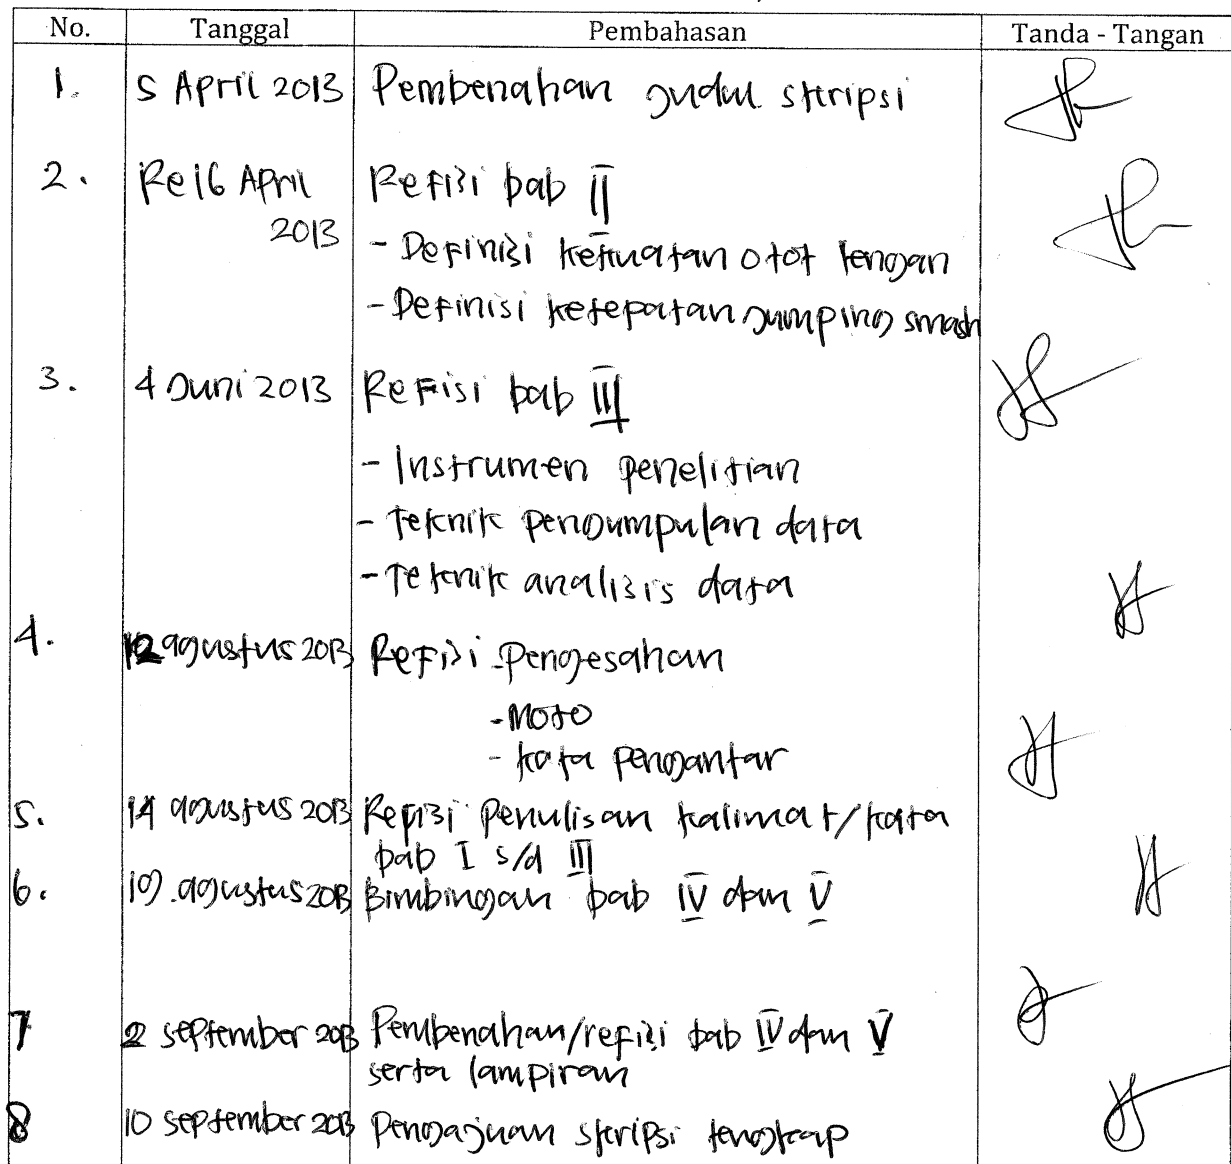 No. Tanggal Pembahasan Tanda - Tangan
1. 5 April 2013 Pembenahan judul skripsi
2. 16 April Refisi bab II
2013
- Definisi kekuatan otot lengan
- Definisi ketepatan jumping smash
3. 4 Juni 2013 Refisi bab III
- Instrumen penelitian
- Teknik pengumpulan data
- Teknik analisis data
4. 12 agustus 2013 Refisi - Pengesahan
- Moto
- kata pengantar
5. 14 agustus 2013 Refisi penulisan kalimat/kata
bab I s/d III
6. 19 agustus 2013 Bimbingan bab IV dan V
7 2 september 2013 Pembenahan/refisi bab IV dan V
serta lampiran
8 10 september 2013 Pengajuan skripsi lengkap